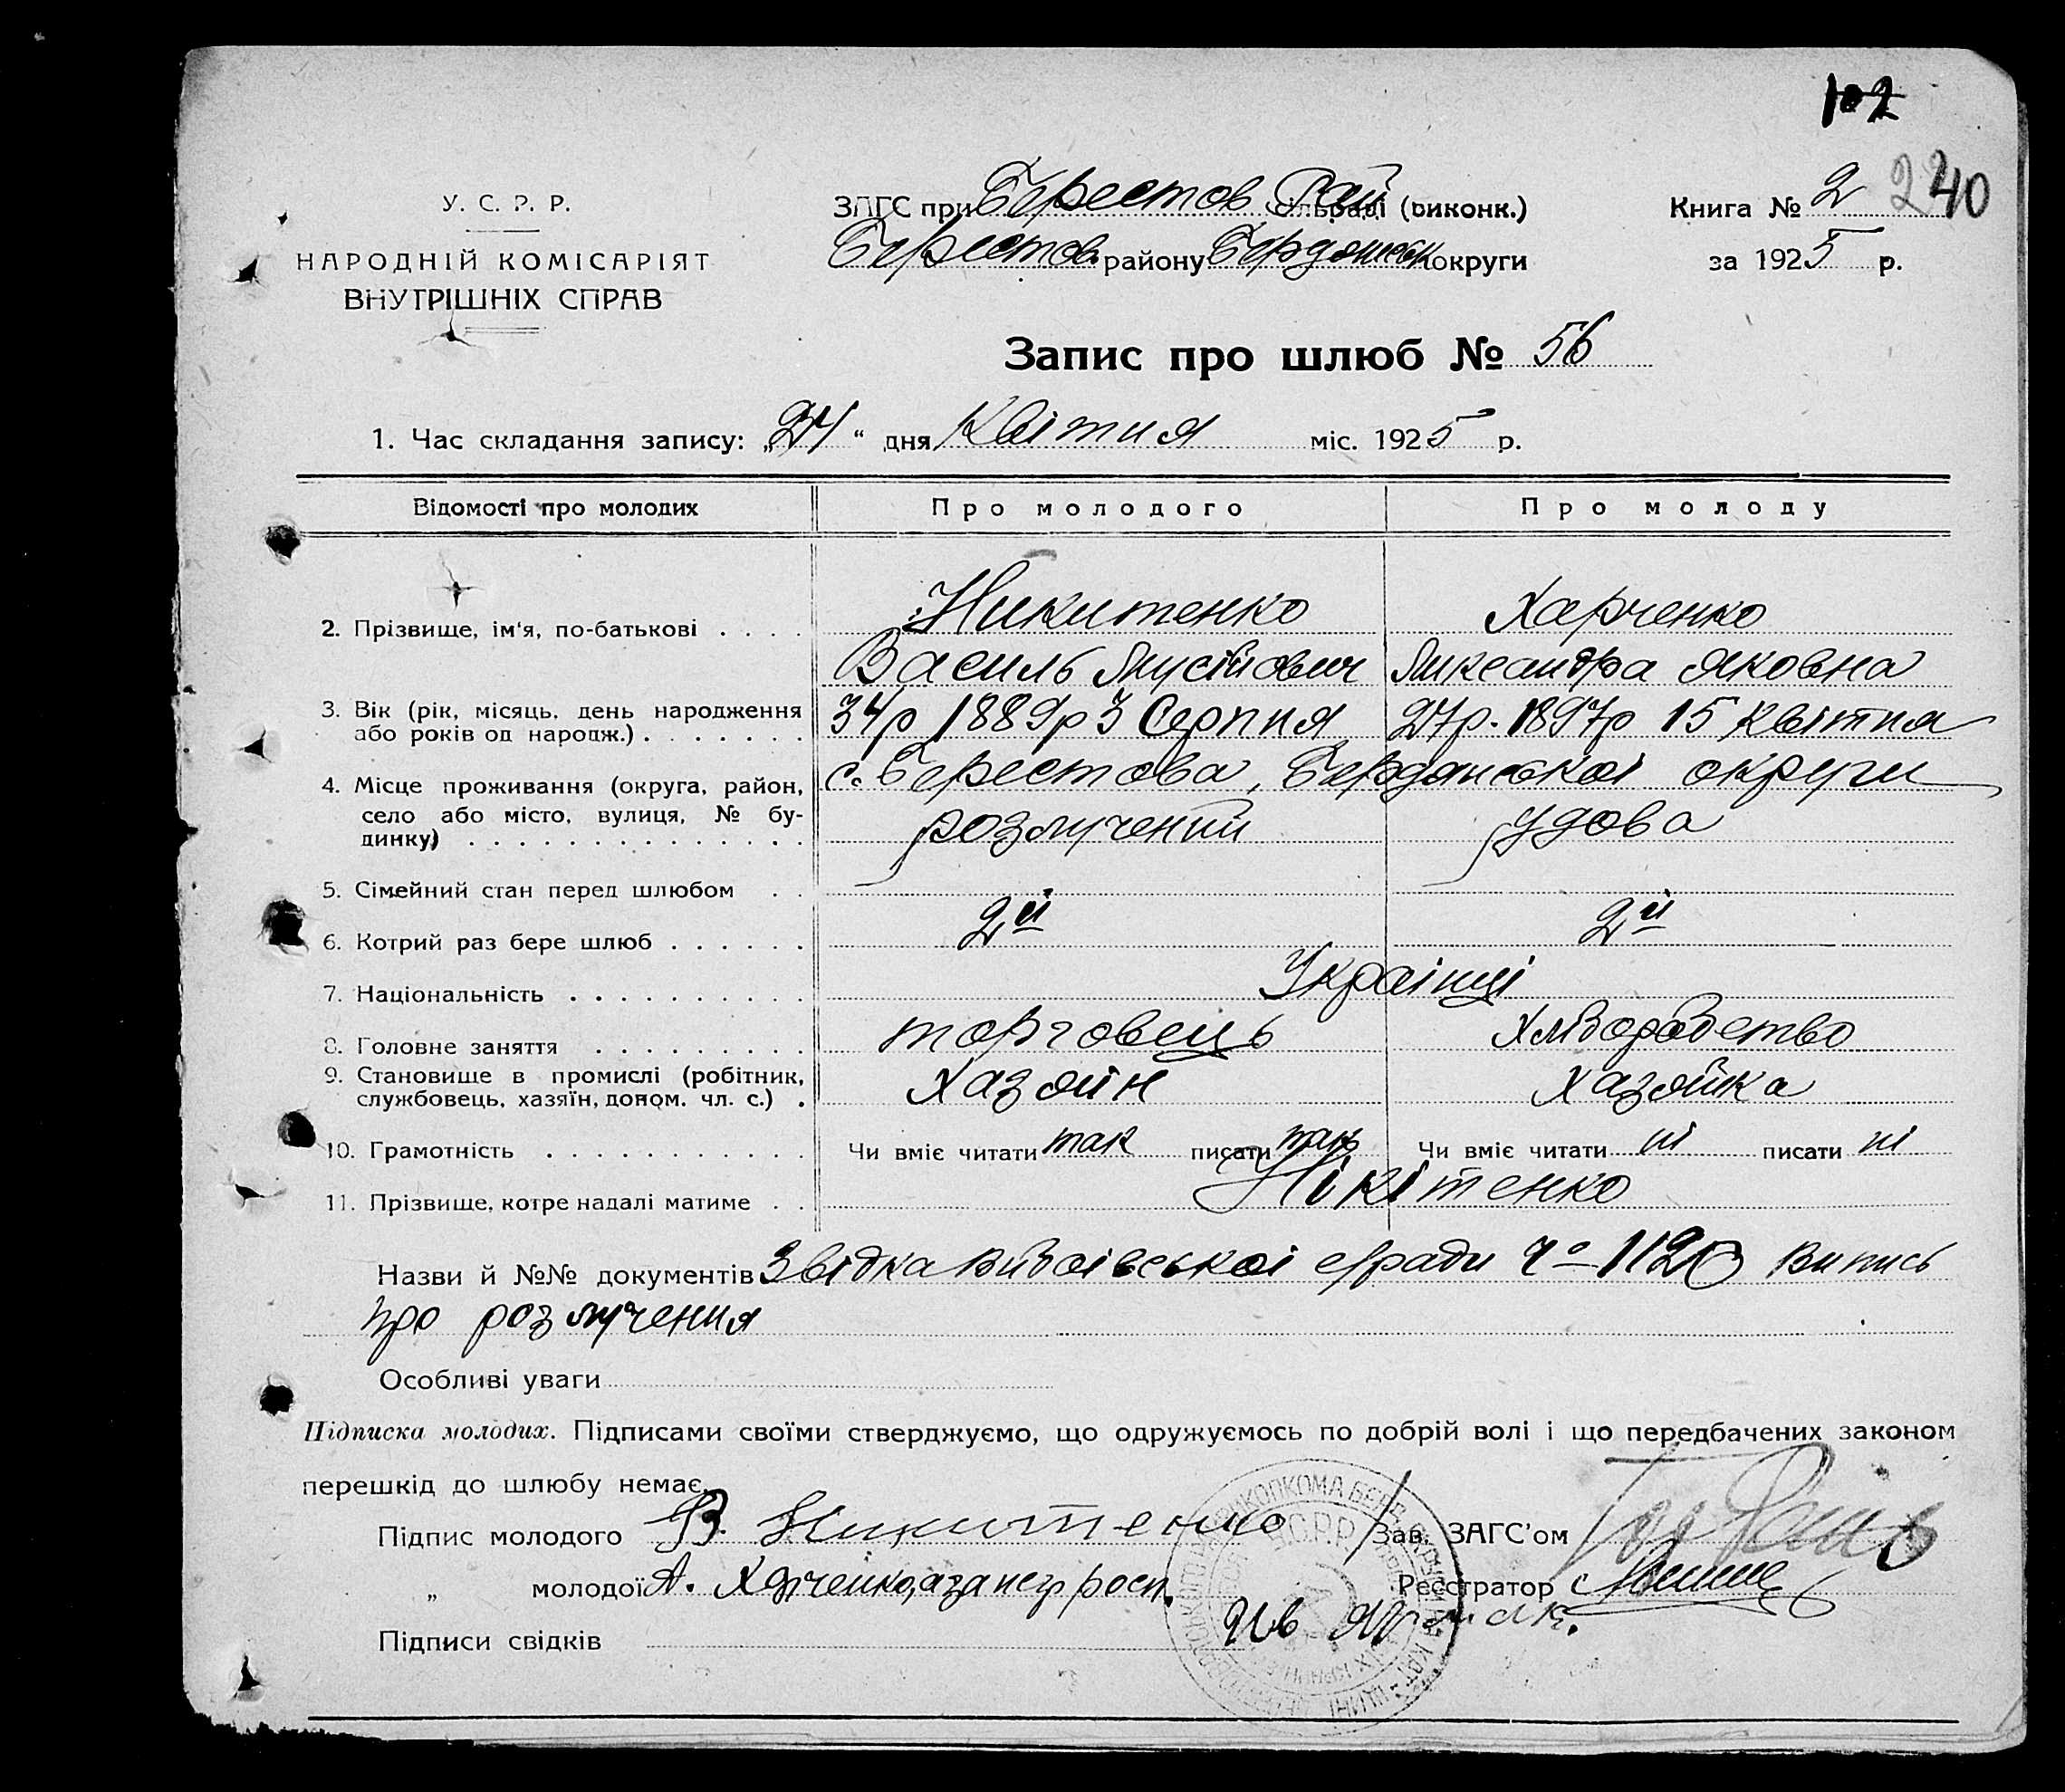 102
У. С. Р. Р.
НАРОДНІЙ КОМІСАРІЯТ
ВНУТРІШНІХ СПРАВ
ЗАГС при Берестов Рай сільраді (виконк.)
Книга № 2 240
Берестов. району Бердянськ округи
за 1925 р.
Запис про шлюб № 56
1. Час складання запису: „24“ дня Квітня міс. 1925 р.
Відомості про молодих Про молодого Про молоду
2. Прізвище, ім'я, по-батькові . . . . Никитенко Харченко
Василь Мусійович Александра Яковна
3. Вік (рік, місяць, день народження
або років од народж.) . . . . . . . 34р 1889р 3 Серпня 27р. 1897р 15 Квітня
4. Місце проживання (округа, район,
село або місто, вулиця, № бу-
динку) . . . . . . . . . . . . . . с. Берестова, Бердянської округи
розлучений удова
5. Сімейний стан перед шлюбом . .
6. Котрий раз бере шлюб . . . . . . 2й 2й
7. Національність . . . . . . . . . . Українці
8. Головне заняття . . . . . . . . . торговець Хліборобство
9. Становище в промислі (робітник,
службовець, хазяїн, допом. чл. с.) . Хазяїн Хазяйка
10. Грамотність . . . . . . . . . . . Чи вміє читати так писати так Чи вміє читати ні писати ні
11. Прізвище, котре надалі матиме . . Нікітенко
Назви й №№ документів Звідка с/ради Ч° 1120 Випись
про розлучення
Особливі уваги
Підписка молодих. Підписами своїми стверджуємо, що одружуємось по добрій волі і що передбачених законом
перешкід до шлюбу немає.
Підпис молодого В. Никитенко Зав. ЗАГС'ом
„ молодої А. Харченко, а за негр росп. Реєстратор
Підписи свідків
У.С.Р.Р.